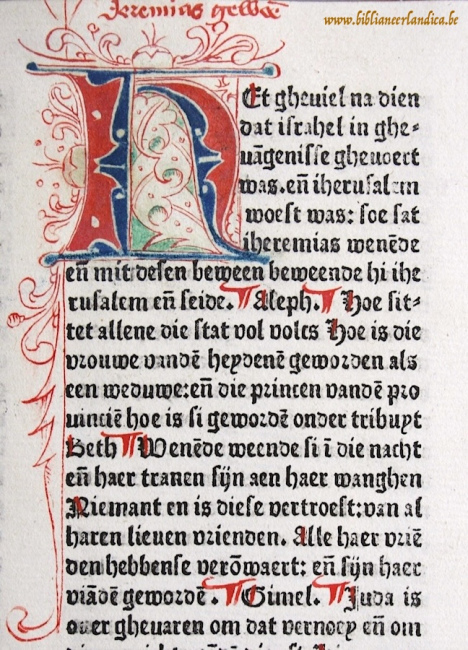 Jeremias gewee
www.biblianeerlandica.be
Et gheviel na dien
dat israhel in ghe-
uāgenisse gheuoert
was. eñ iherusalem
woest was: soe sat
iheremias wenēde
eñ mit desen beween beweende hi ihe
rusalem eñ seide. Aleph. Hoe sit-
tet allene die stat vol volcs Hoe is die
vrouwe vandē heydenē geworden als
een weduwe: eñ die princen vandē pro
uinciē hoe is si gewordē onder tribuyt
Beth Wenēde weende si ī die nacht
eñ haer tranen sijn aen haer wanghen
Niemant en is diese vertroest: van al
haren lieuen vrienden. Alle haer vriē
den hebbense verōwaert: eñ sijn haer
viādē gewordē. Gimel. Juda is
ouer gheuaren om dat vernoey eñ om